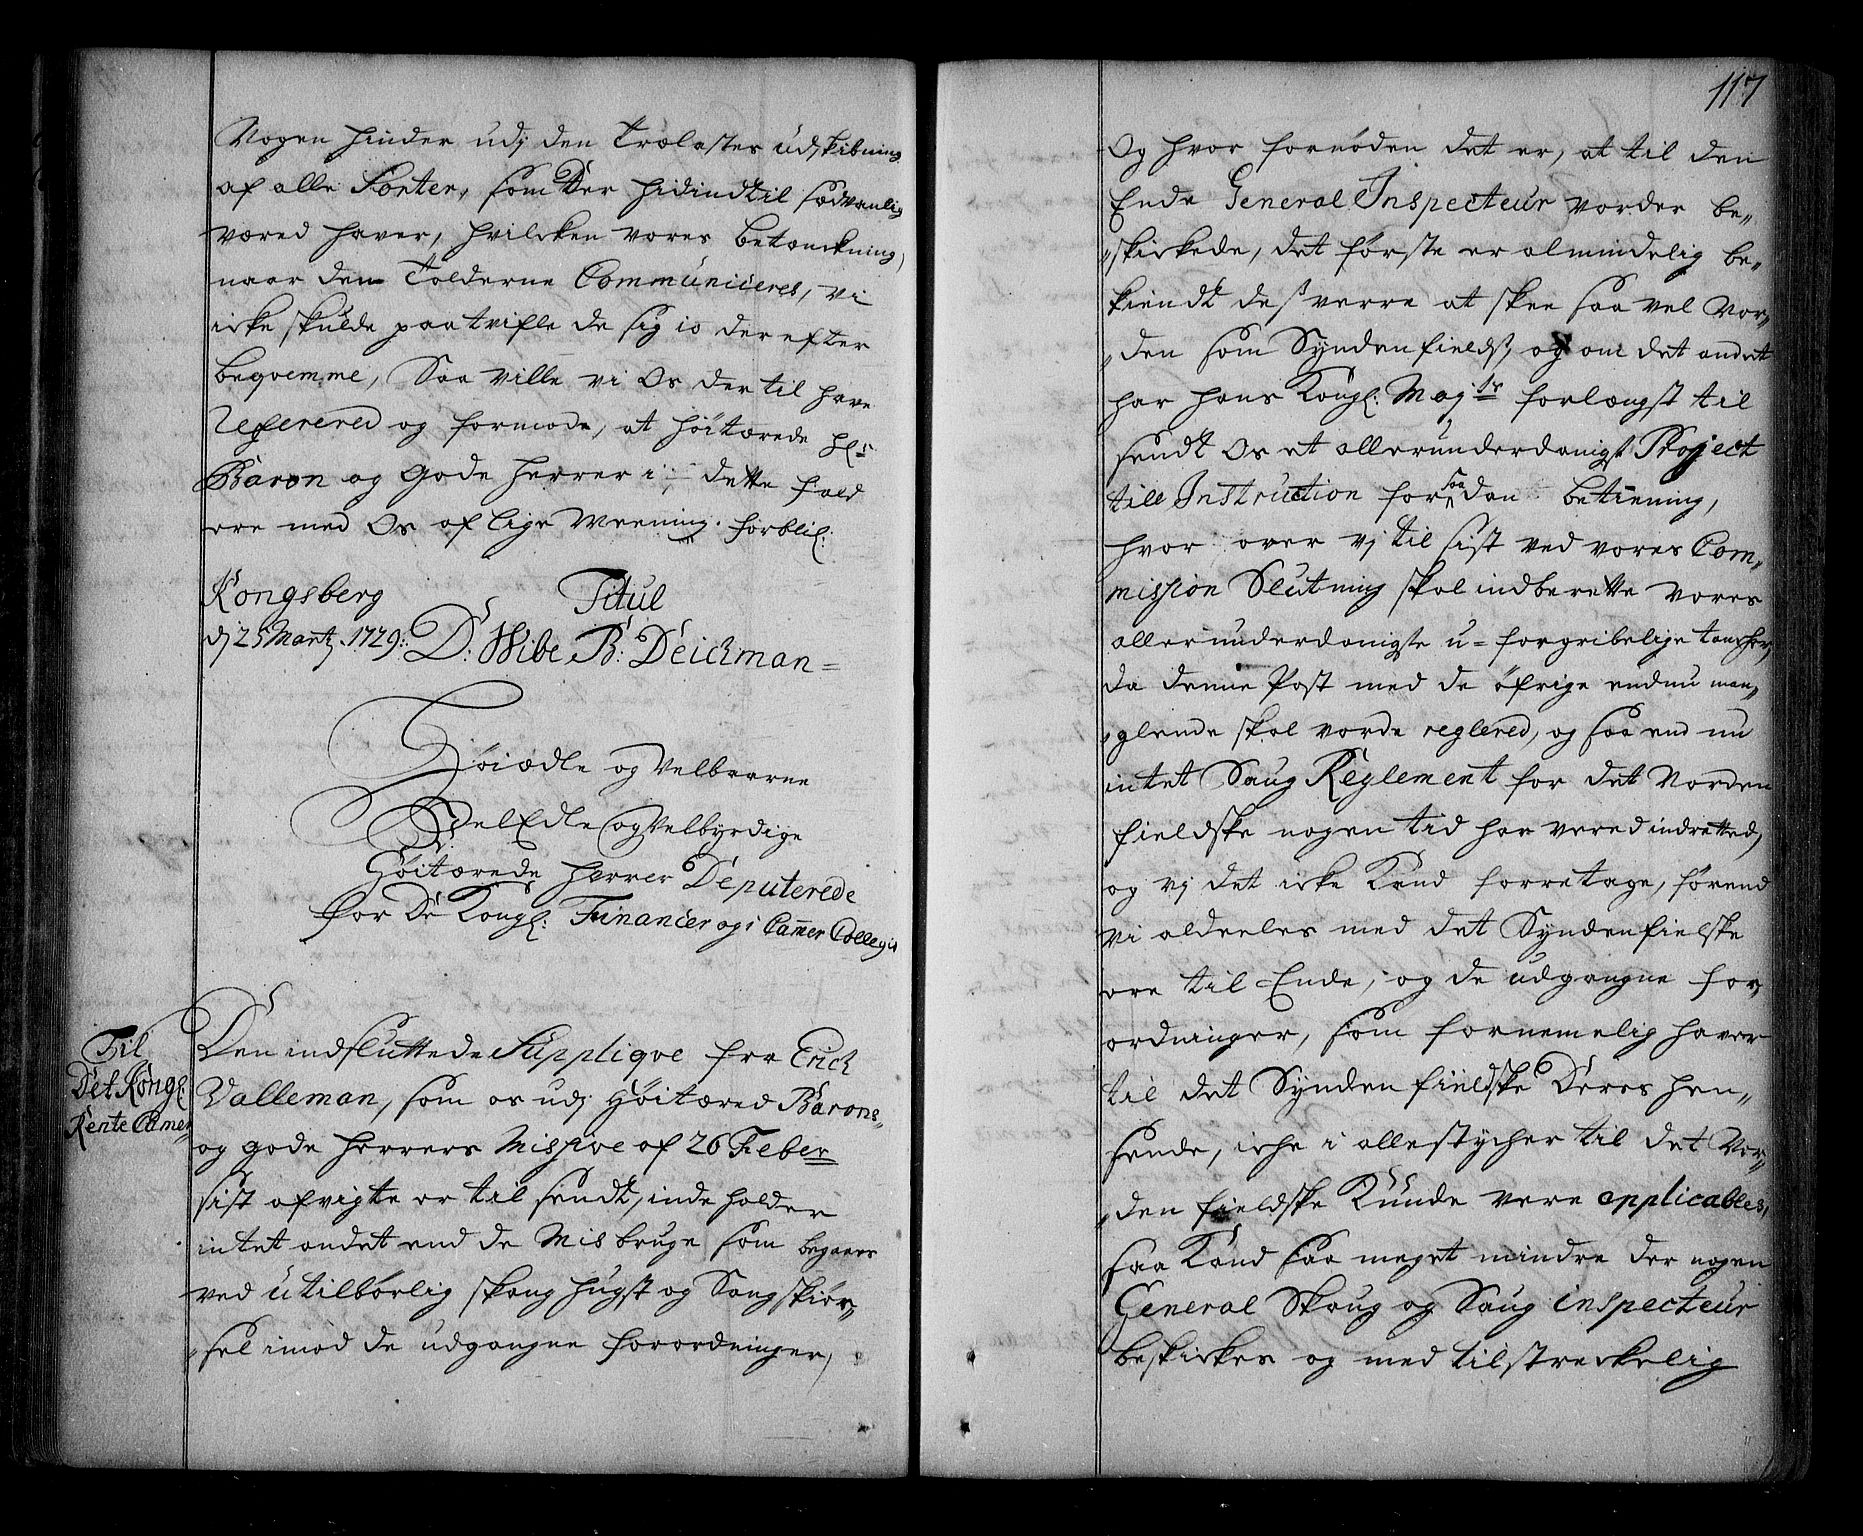 Nogen hinder udj den Trælastes udskibning
af alle Sorter, som der hidindtil sædvanlig
væred haver, hvilcken vores betænckning,
naar den Tolderne Communiceres, vi
icke skulde paatvifle de sig io der efter
beqvemme, Saa ville vi Os der til have
Referered og formode, at høitærede Hr
Baron og gode Herrer i dette fald
ere med Os af lige Meening. forblif:
Kongsberg
Titul
dj 25 Martj 1729: D: Wibe B: Deichman
Høiædle og Velbaarne
VelEdle og Velbyrdige
Høitærede Herrer Deputerede
for De Kongl: Financier og i Camer Collegio
Til
Det Kongl:
Rente Camer
Den indsluttede Supplique fra Erich
Valleman, som os udj Høitæred Barons
og gode Herrers Missive af 26 Feber
sist afvigte er til sendt, inde holder
intet andet end de Misbruge som begaaes
ved utilbørlig skoug hugst og Saug skiør„
„sel imod de udgangne forordninger,
117
Og hvor fornøden det er, at til den
Ende General Inspecteur vorder be„
„skickede, det første er almindelig be„
kiendt des verre at skee saa vel Nor„
„den som Syndenfields, og om det andet
har hans Kongl: Majts forlængst til
sendt Os et allerunderdanigst Project
till Instruction for saadan betiening,
hvor over vj til sist ved vores Com„
mission Slutning skal indberette vores
allerunderdanigste u-forgribelige tancher,
da denne Post med de øfrige endnu man„
„glende skal vorde reglered, og saa end nu
intet Saug Reglement for det Norden
fieldske nogen tid har vered indrætted,
og vj det icke Kand forretage, førend
vi aldeeles med det Syndenfielske
ere til Ende, og de udgangne for„
ordninger, som fornemelig haver
til det Synden fieldske Deres hen„
seende, iche i alle stycher til det Nor„
„den fieldske Kunde vere applicables,
saa Kand saa meget mindre der nogen
General Skoug og Saug inspecteur
beskickes og med tilstreckelig